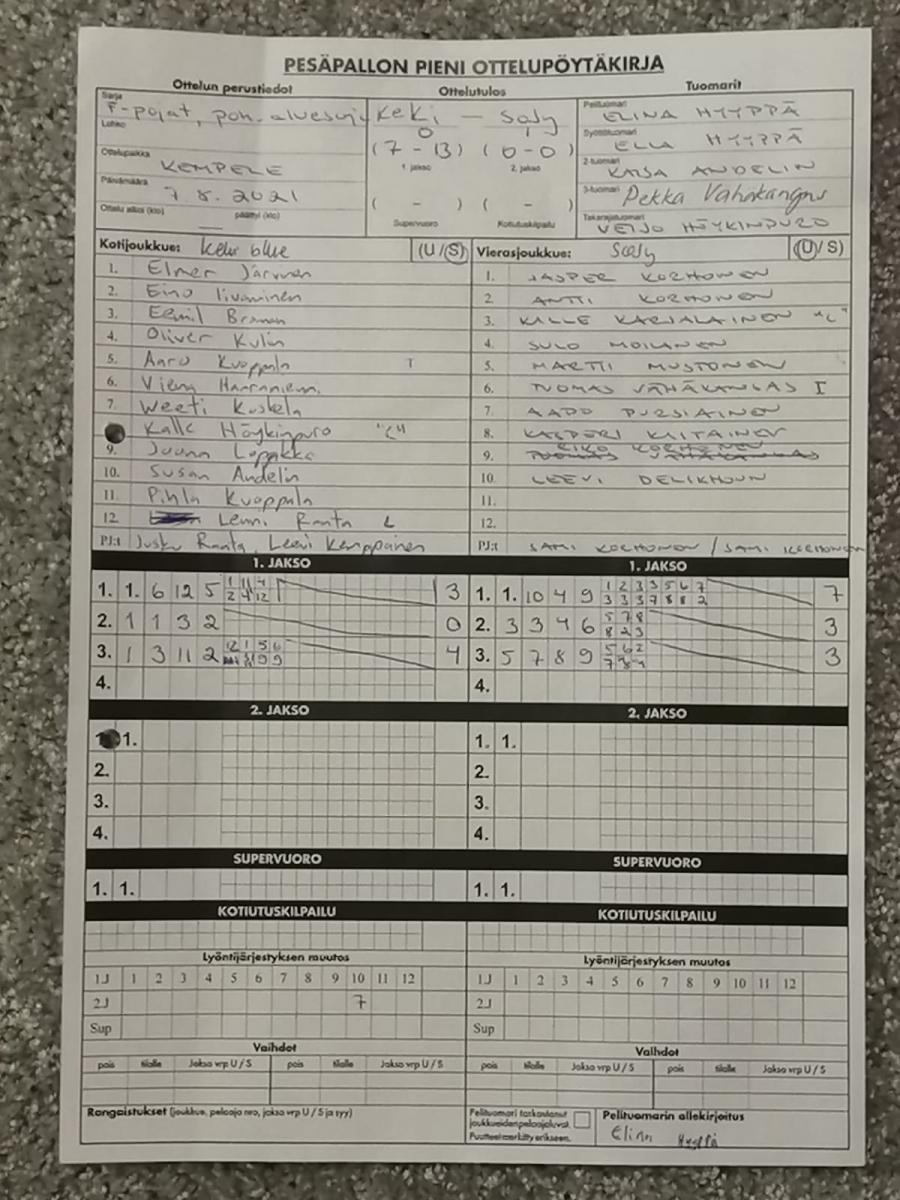 PESÄPALLON PIENI OTTELUPÖYTÄKIRJA
Ottelun perustiedot Ottelutulos Tuomarit
Sarja F-pojat, poh.aluesarja
KeKi — SoJy
Pelituomari ELINA HYYPPÄ
Lohko
0 1
Syöttötuomari ELLA HYYPPÄ
Ottelupaikka KEMPELE
(7 - 13) (0-0)
1. jakso 2. jakso
2-tuomari KAISA ANDELIN
Päivämäärä 7.8.2021
3-tuomari Pekka Vähäkangas
Ottelu alkoi (klo) päättyi (klo)
( - ) ( - )
Supervuoro Kotiutuskilpailu
Takarajatuomari VEIJO HÖYKINPURO
Kotijoukkue: KeKi blue (U/S)
Vierasjoukkue: SoJy (U/S)
1. Elmer Järvinen
2. Eino Iivarinen
3. Eemil
4. Oliver Kylin
5. Aaro Kuoppala I
6. Viena Haaraniemi
7. Weeti Koskela
Kalle Höykinpuro "L"
9. Juuna
10. Susan Andelin
11. Pihla Kuoppala
12. Lenni Ranta L
PJ:t Ranta, Leevi Kemppainen
1. JASPER KORHONEN
2. ANTTI KORHONEN
3. KALLE KARJALAINEN "L"
4. SULO MOILANEN
5. MARTTI MUSTONEN
6. TUOMAS VÄHÄKANGAS I
7. AAPO PURSIAINEN
8. KASPERI KAITAINEN
9. KORHONEN
10. LEEVI DELIKHOUN
11.
12.
PJ:t SAMI KORHONEN / SAMI KORHONEN
1. JAKSO
1. 1. 6 12 5 3
2. 1 1 3 2 0
3. 1 3 11 2 4
4.
1. JAKSO
1. 1. 10 4 9 1 2 3 3 5 6 7 7
3 3 3 7 8 8 2
2. 3 3 4 6 5 7 8 3
8 2 3
3. 5 7 8 9 5 6 2 3
4.
2. JAKSO
1.
2.
3.
4.
2. JAKSO
1. 1.
2.
3.
4.
SUPERVUORO
1. 1.
SUPERVUORO
1. 1.
KOTIUTUSKILPAILU
KOTIUTUSKILPAILU
Lyöntijärjestyksen muutos
1J 1 2 3 4 5 6 7 8 9 10 11 12
2J 7
Sup
Lyöntijärjestyksen muutos
1J 1 2 3 4 5 6 7 8 9 10 11 12
2J
Sup
Vaihdot
pois tilalle Jakso vrp U / S pois tilalle Jakso vrp U / S
Vaihdot
pois tilalle Jakso vrp U / S pois tilalle Jakso vrp U / S
Rangaistukset (joukkue, pelaaja nro, jakso vrp U / S ja syy)
Pelituomari tarkastanut
joukkueiden pelaajaluvat.
Puutteet merkitty erikseen.
Pelituomarin allekirjoitus
Elina Hyyppä